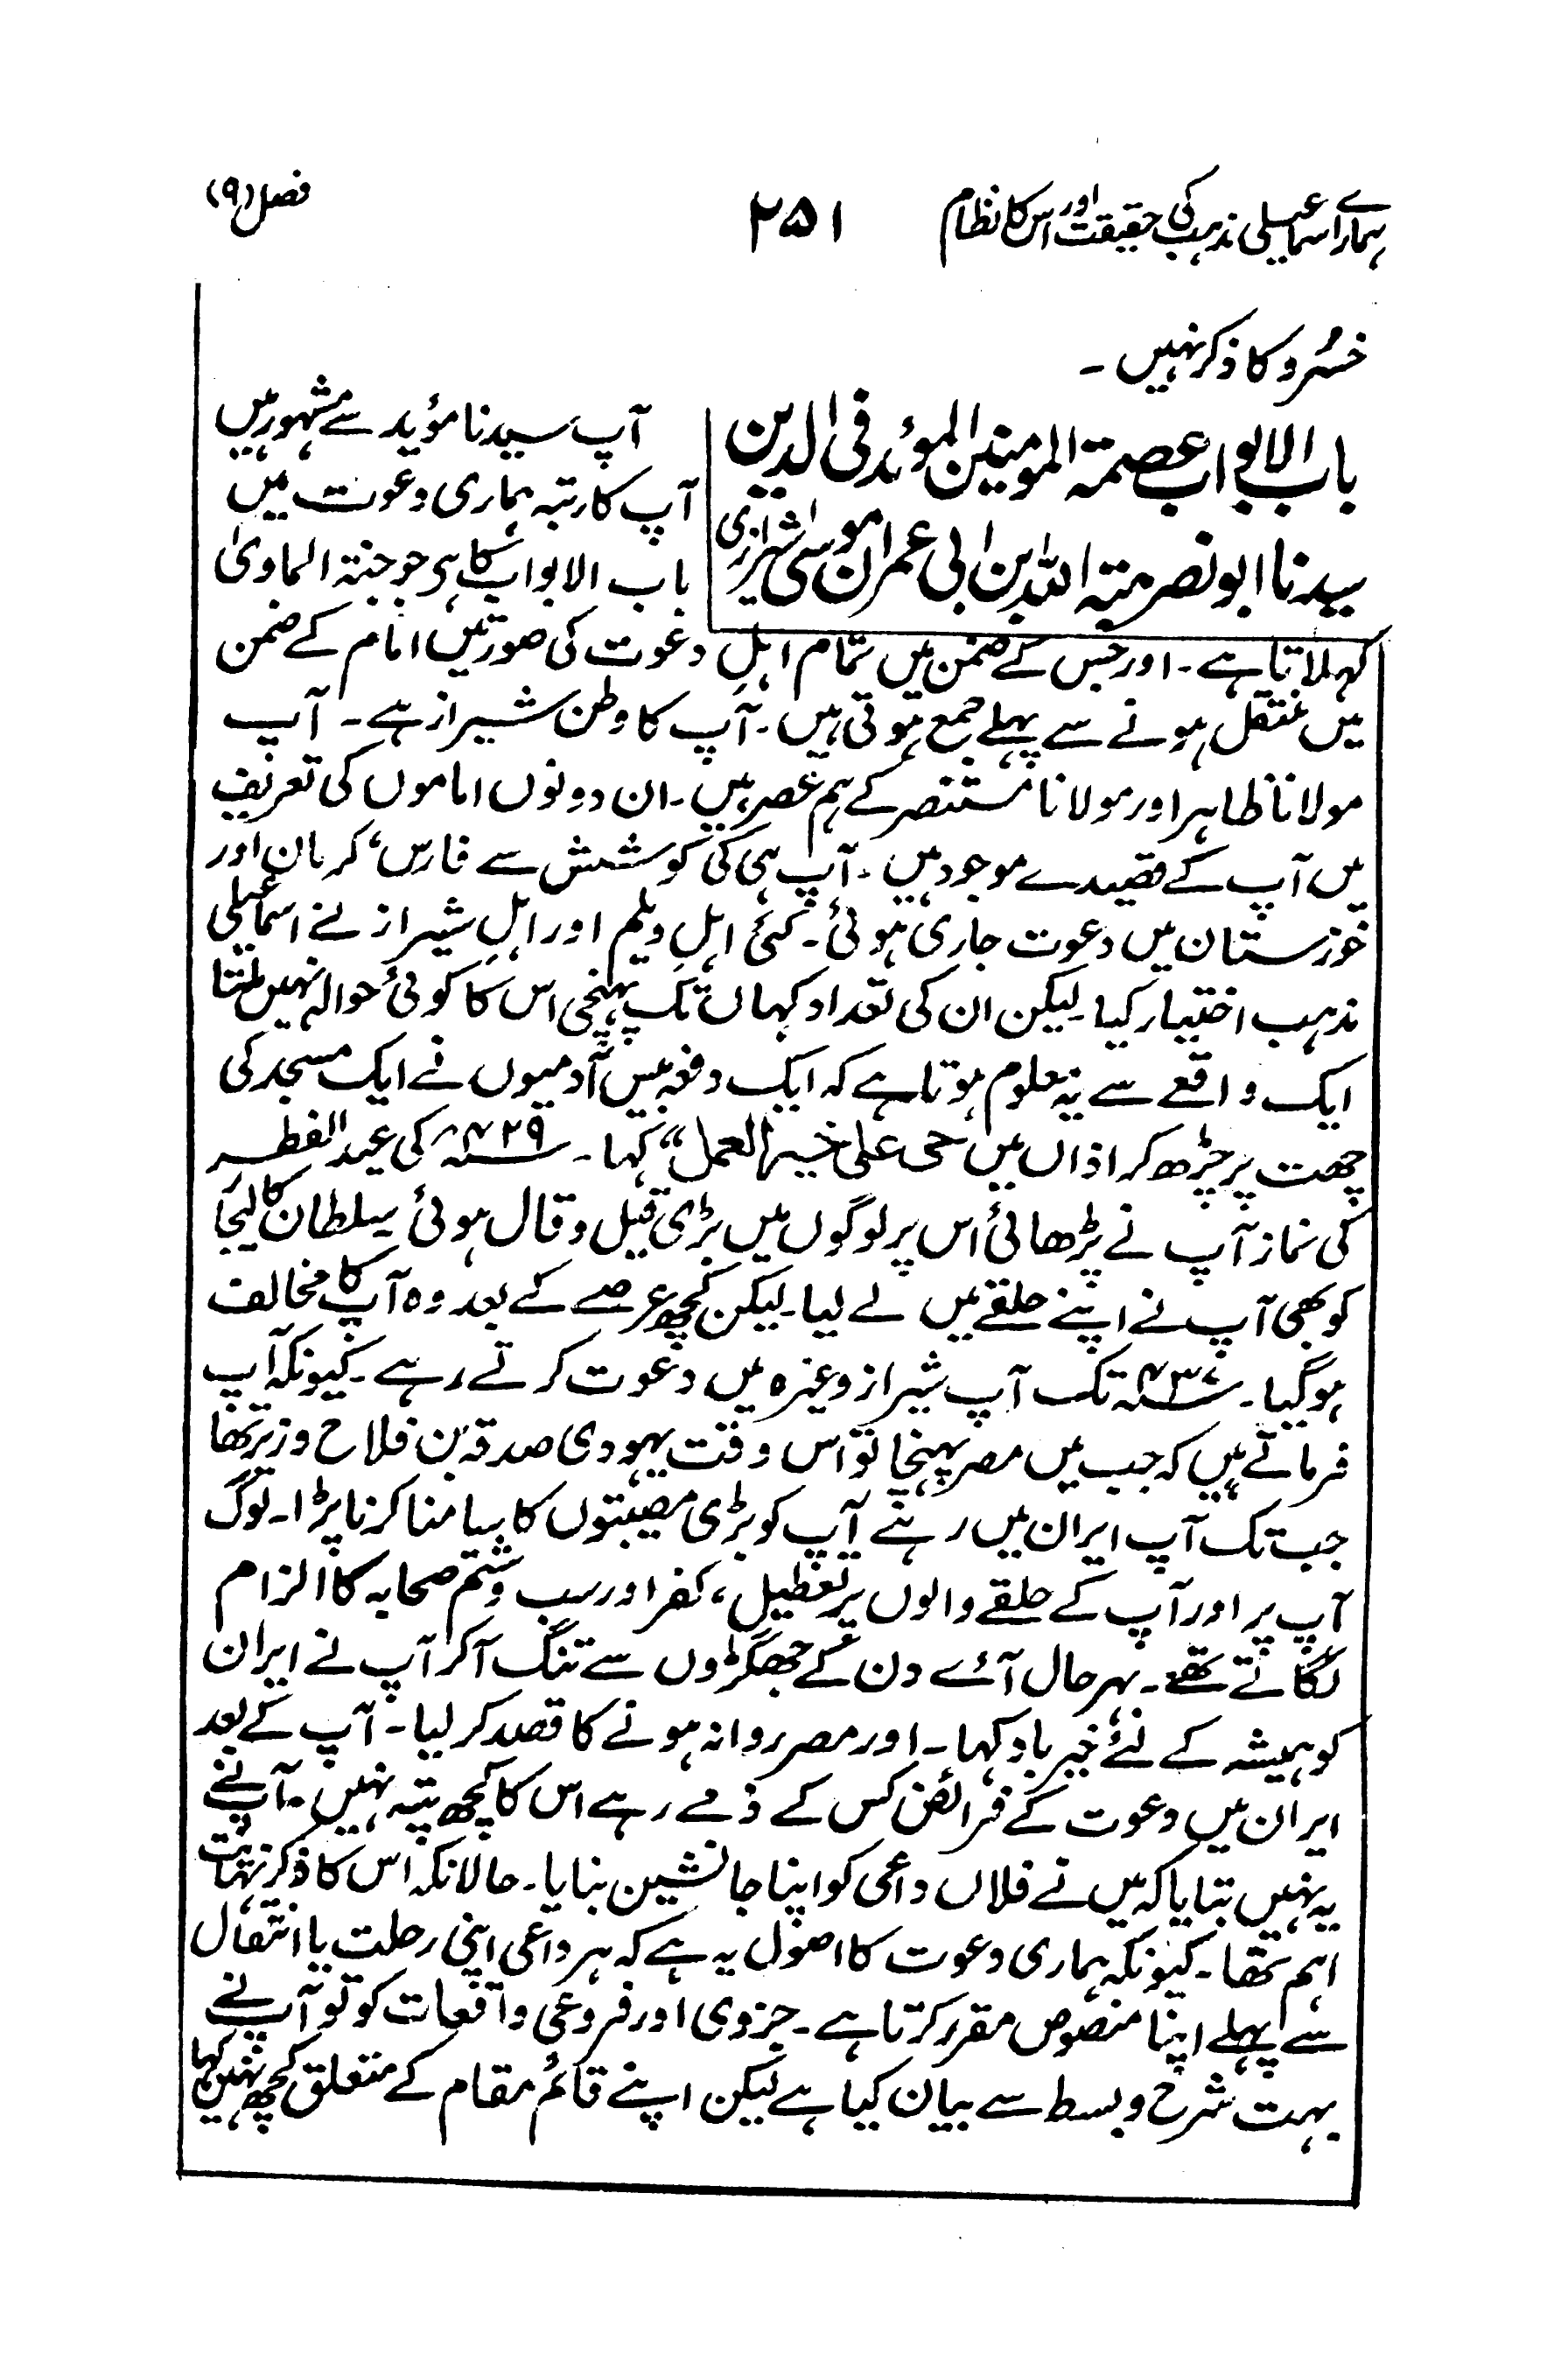 ہمارے اسماعیلی مذہب کی حقیقت اور اس کا نظام
۲۵۱
فصل (۹)
خسرو کا ذکر نہیں ۔
باب الابواب عصمۃ المومنین المؤید فی الدین
سیدنا ابو نصر ہبۃ اللہ بن ابی عمران موسیٰ شیرازی
آپ سیدنا مؤید سے مشہور ہیں
آپ کا رتبہ ہماری دعوت میں
باب الابواب کا ہی جو جنتہ الماویٰ
کہلاتا ہے ۔ اور جس کے ضمن میں تمام اہلِ دعوت کی صورتیں امام کے ضمن
میں منتقل ہونے سے پہلے جمع ہوتی ہیں ۔ آپ کا وطن شیراز ہے ۔ آپ
مولانا ظاہر اور مولانا مستنصر کے ہم عصر ہیں ۔ ان دونوں اماموں کی تعریف
میں آپ کے قصیدے موجود ہیں ۔ آپ ہی کی کوشش سے فارس، کرمان اور
خوزستان میں دعوت جاری ہوئی ۔ کئی اہلِ دیلم اور اہلِ شیراز نے اسماعیلی
مذہب اختیار کیا ۔ لیکن ان کی تعداد کہاں تک پہنچی اس کا کوئی حوالہ نہیں ملتا
ایک واقعے سے یہ معلوم ہوتا ہے کہ ایک دفعہ بیس آدمیوں نے ایک مسجد کی
چھت پر چڑھ کر اذاں میں حی علی خیر العمل“ کہا ۔ ۴۲۹؁ھ کی عید الفطر
کی نماز آپ نے پڑھائی اس پر لوگوں میں بڑی قیل و قال ہوئی سلطان کالیجار
کو بھی آپ نے اپنے حلقے میں لے لیا ۔ لیکن کچھ عرصے کے بعد وہ آپ کا مخالف
ہو گیا ۔ ۴۳۷؁ھ تک آپ شیراز وغیرہ میں دعوت کرتے رہے ۔ کیونکہ آپ
فرماتے ہیں کہ جب میں مصر پہنچا تو اس وقت یہودی صدقہ بن فلاح وزیر تھا
جب تک آپ ایران میں رہے آپ کو بڑی مصیبتوں کا سامنا کرنا پڑا ۔ لوگ
آپ پر اور آپ کے حلقے والوں پر تعطیل، کفر اور سب و شتم صحابہ کا الزام
لگاتے تھے ۔ بہر حال آئے دن کے جھگڑوں سے تنگ آکر آپ نے ایران
کو ہمیشہ کے لئے خیر باد کہا ۔ اور مصر روانہ ہونے کا قصد کر لیا ۔ آپ کے بعد
ایران میں دعوت کے فرائض کس کے ذمے رہے اس کا کچھ پتہ نہیں ۔ آپ نے
یہ نہیں بتایا کہ میں نے فلاں داعی کو اپنا جانشین بنایا ۔ حالانکہ اس کا ذکر نہایت
اہم تھا ۔ کیونکہ ہماری دعوت کا اصول یہ ہے کہ ہر داعی اپنی رحلت یا انتقال
سے پہلے اپنا منصوص مقرر کرتا ہے ۔ جزوی اور فروعی واقعات کو تو آپ نے
بہت شرح و بسط سے بیان کیا ہے لیکن اپنے قائم مقام کے متعلق کچھ نہیں کہا